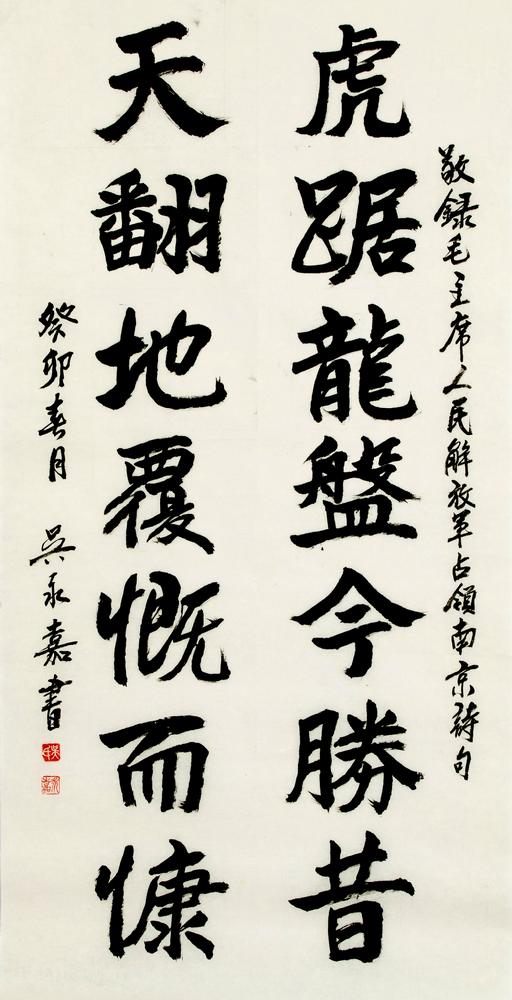 敬録毛主席人民解放军占領南京詩句
虎踞龍盤今勝昔
天翻地覆慨而慷
癸卯春月 吴永嘉書
吴氏
永嘉